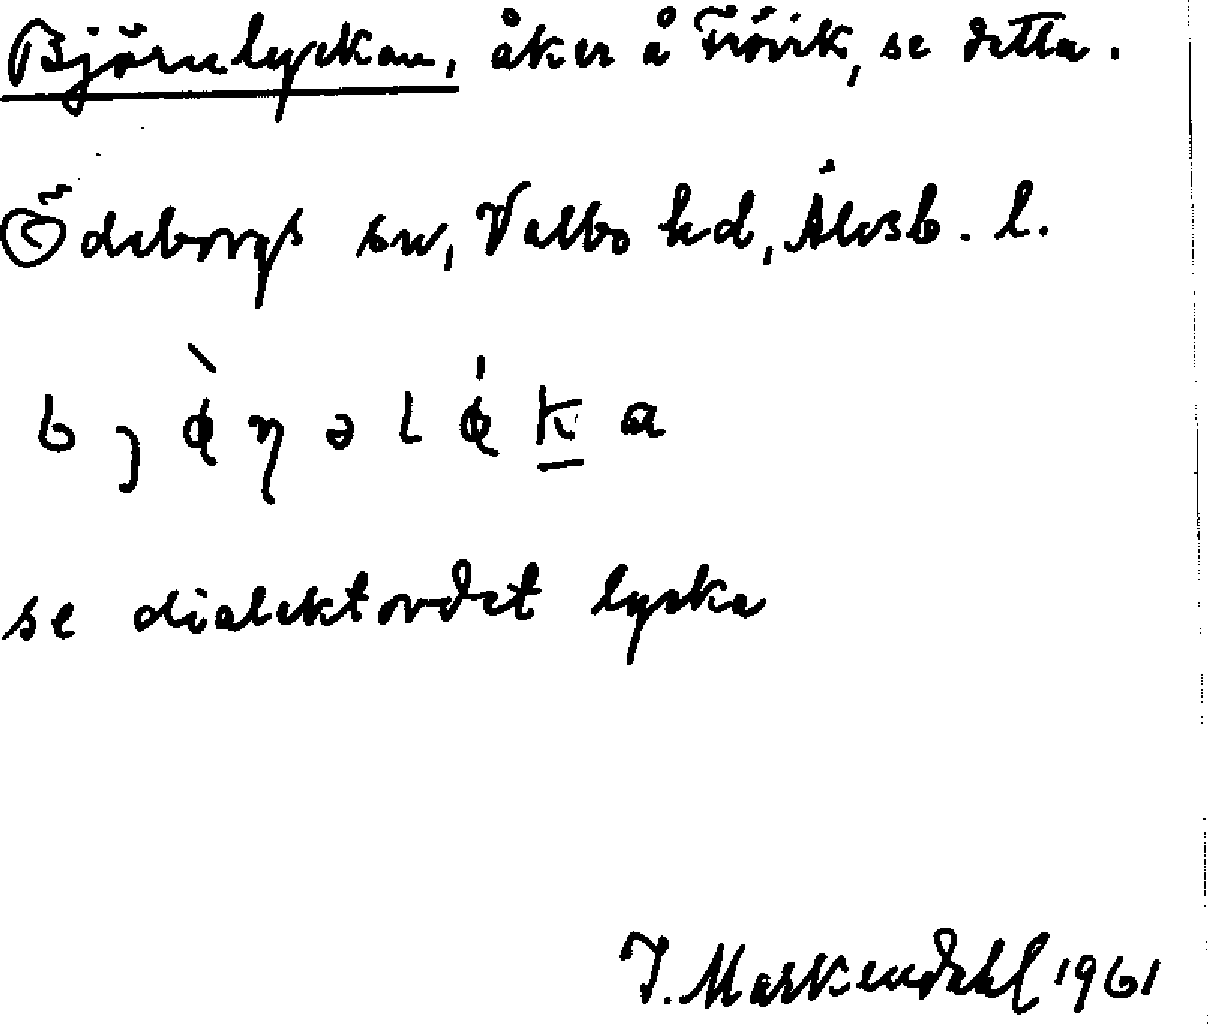 Björnlyckan, åker å Frövik, se detta.
Ödeborgs sn, Valbo hd, Älvsb. l.
se dialektordet lycka
I. Markendahl 1961